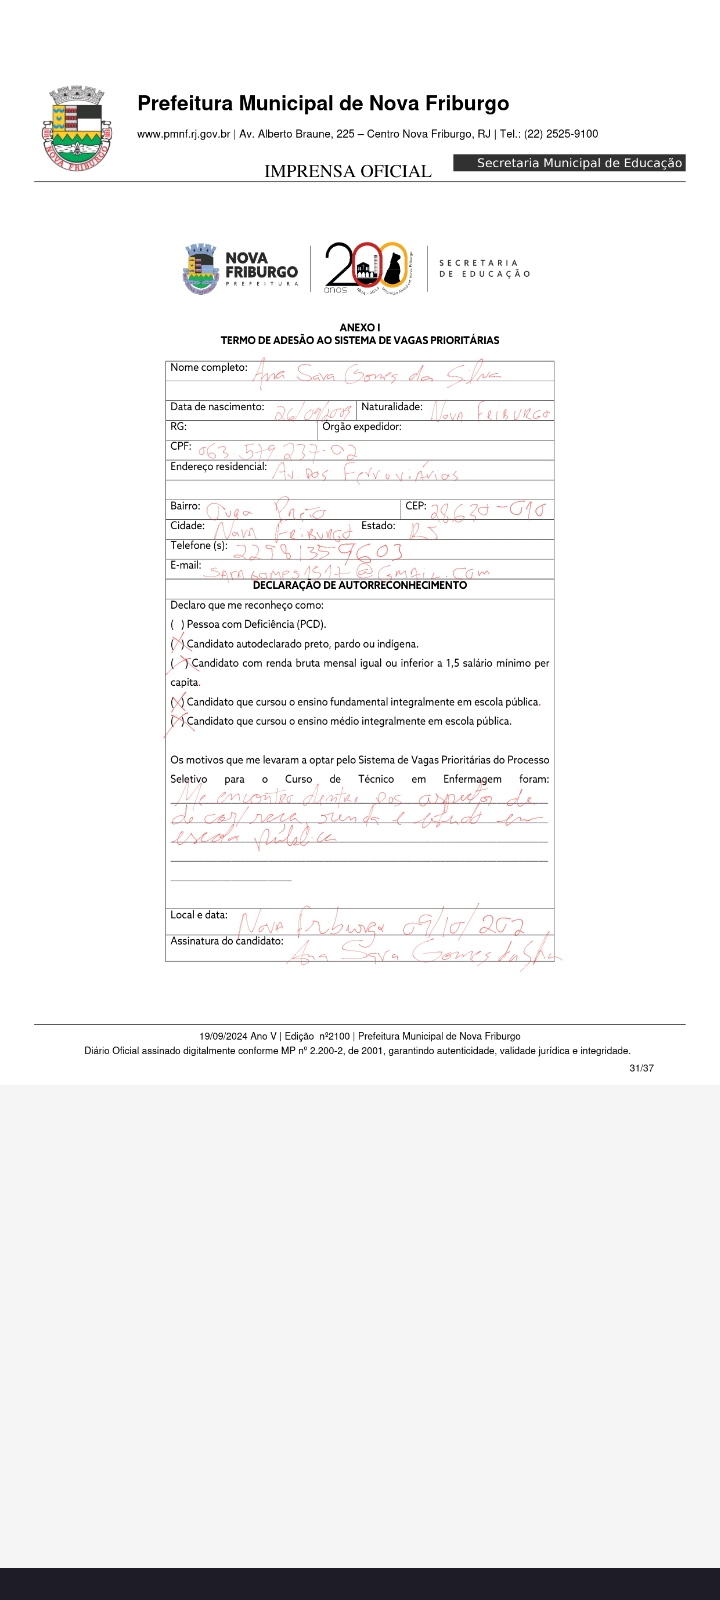 Prefeitura Municipal de Nova Friburgo
www.pmnf.rj.gov.br | Av. Alberto Braune, 225 – Centro Nova Friburgo, RJ | Tel.: (22) 2525-9100
IMPRENSA OFICIAL
Secretaria Municipal de Educação
NOVA FRIBURGO
NOVA FRIBURGO PREFEITURA
200 anos
SECRETARIA DE EDUCAÇÃO
ANEXO I
TERMO DE ADESÃO AO SISTEMA DE VAGAS PRIORITÁRIAS
Nome completo: Ana Sara Gomes da Silva
Data de nascimento: 26/09/2009 Naturalidade: Nova FRIBURGO
RG: Órgão expedidor:
CPF: 063.579.237-02
Endereço residencial: Av dos Ferroviários
Bairro: Preto CEP: 28630-010
Cidade: Nova FRiBURGO Estado: RJ
Telefone (s): 22981359603
E-mail: SARAGOMES1517@GMAIL.COM
DECLARAÇÃO DE AUTORRECONHECIMENTO
Declaro que me reconheço como:
( ) Pessoa com Deficiência (PCD).
(X) Candidato autodeclarado preto, pardo ou indígena.
(X) Candidato com renda bruta mensal igual ou inferior a 1,5 salário mínimo per
capita.
(X) Candidato que cursou o ensino fundamental integralmente em escola pública.
(X) Candidato que cursou o ensino médio integralmente em escola pública.
Os motivos que me levaram a optar pelo Sistema de Vagas Prioritárias do Processo
Seletivo para o Curso de Técnico em Enfermagem foram:
Me encontro dentro dos aspectos de
de cor/raça, renda e estudo em
escola pública
Local e data: Nova friburgo 09/10/202
Assinatura do candidato: Ana Sara Gomes da Silva
19/09/2024 Ano V | Edição nº2100 | Prefeitura Municipal de Nova Friburgo
Diário Oficial assinado digitalmente conforme MP nº 2.200-2, de 2001, garantindo autenticidade, validade jurídica e integridade.
31/37